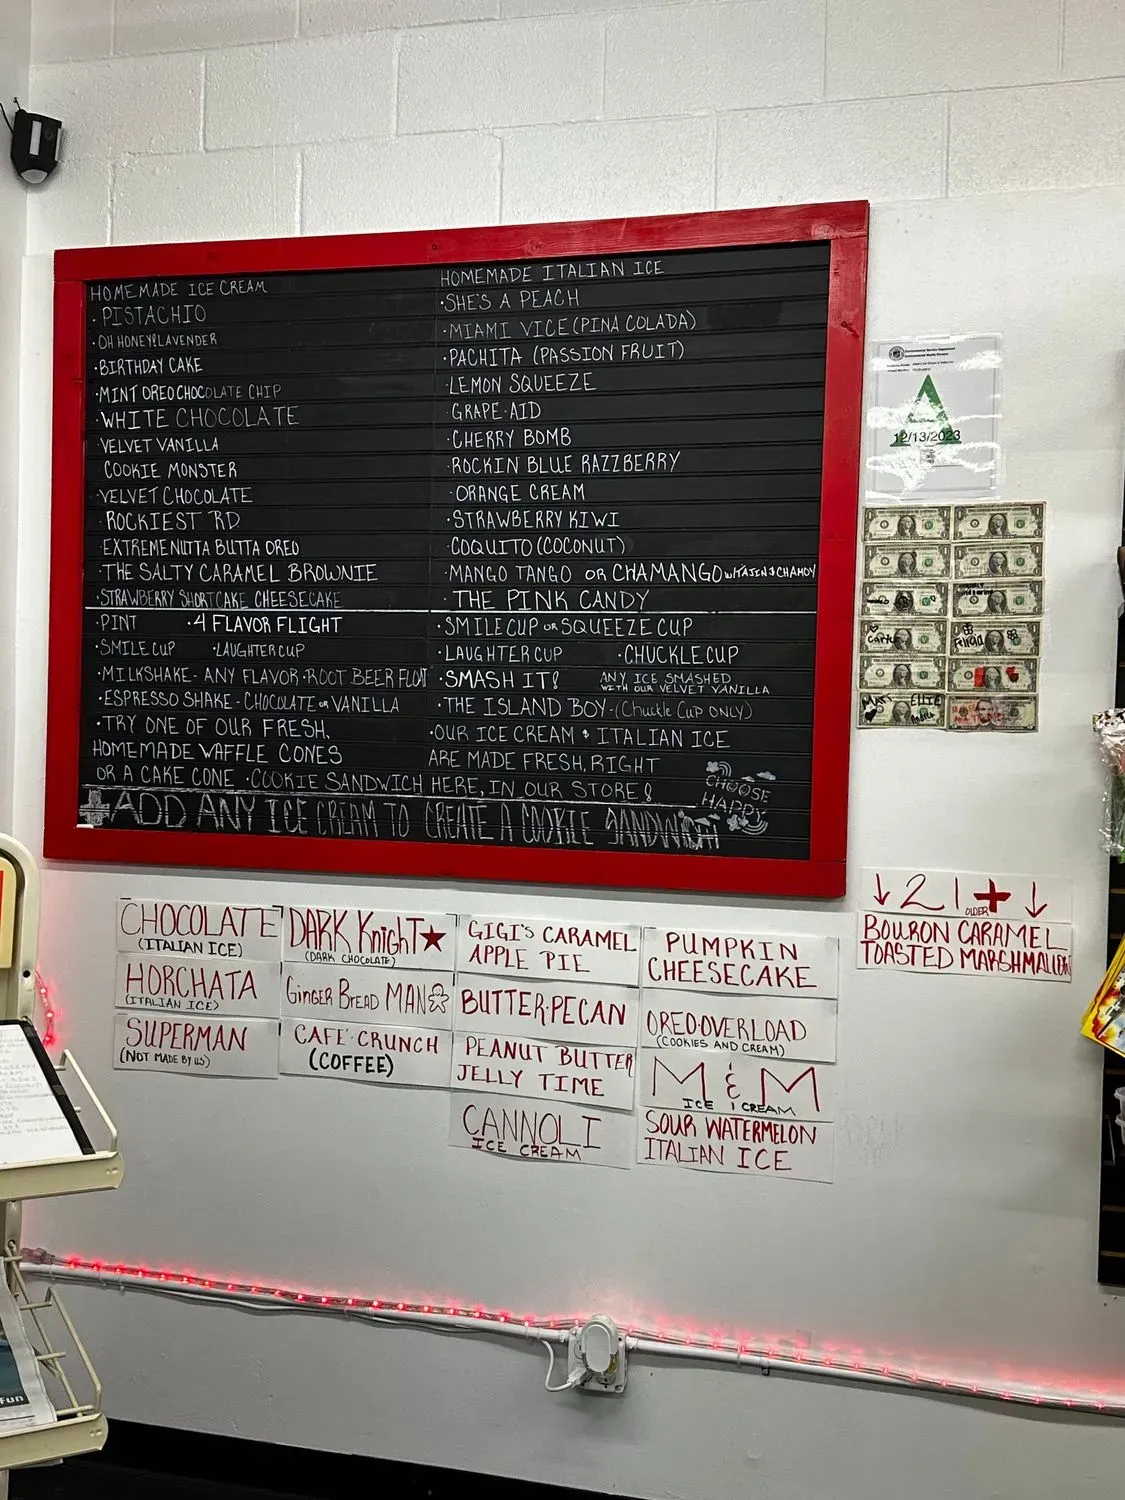 HOMEMADE ICE CREAM
· PISTACHIO
· OH HONEY LAVENDER
· BIRTHDAY CAKE
· MINT OREO CHOCOLATE CHIP
· WHITE CHOCOLATE
VELVET VANILLA
COOKIE MONSTER
· VELVET CHOCOLATE
· ROCKIEST RD
· EXTREME NUTTA BUTTA OREO
· THE SALTY CARAMEL BROWNIE
· STRAWBERRY SHORTCAKE CHEESECAKE
· PINT · 4 FLAVOR FLIGHT
· SMILE CUP · LAUGHTER CUP
· MILKSHAKE - ANY FLAVOR · ROOT BEER FLOAT
· ESPRESSO SHAKE - CHOCOLATE or VANILLA
· TRY ONE OF OUR FRESH,
HOMEMADE WAFFLE CONES
OR A CAKE CONE · COOKIE SANDWICH
HOMEMADE ITALIAN ICE
· SHE'S A PEACH
· MIAMI VICE (PINA COLADA)
· PACHITA (PASSION FRUIT)
· LEMON SQUEEZE
· GRAPE-AID
· CHERRY BOMB
· ROCKIN BLUE RAZZBERRY
· ORANGE CREAM
· STRAWBERRY KIWI
· COQUITO (COCONUT)
· MANGO TANGO OR CHAMANGO w/TAJIN & CHAMOY
· THE PINK CANDY
· SMILE CUP or SQUEEZE CUP
· LAUGHTER CUP · CHUCKLE CUP
· SMASH IT! ANY ICE SMASHED
WITH OUR VELVET VANILLA
· THE ISLAND BOY - (Chuckle Cup ONLY)
· OUR ICE CREAM & ITALIAN ICE
ARE MADE FRESH, RIGHT
HERE, IN OUR STORE!
CHOOSE
HAPPY
+ ADD ANY ICE CREAM TO CREATE A COOKIE SANDWICH
12/13/2023
Carter
Felicia
ELLIE
↓ 21 + ↓
OLDER
BOURON CARAMEL
TOASTED MARSHMALLOW
CHOCOLATE
(ITALIAN ICE)
HORCHATA
(ITALIAN ICE)
SUPERMAN
(NOT MADE BY US)
DARK KnighT ★
(DARK CHOCOLATE)
GINGER BREAD MAN
CAFE' CRUNCH
(COFFEE)
GIGI'S CARAMEL
APPLE PIE
BUTTER·PECAN
PEANUT BUTTER
JELLY TIME
CANNOLI
ICE CREAM
PUMPKIN
CHEESECAKE
OREO·OVERLOAD
(COOKIES AND CREAM)
M & M
ICE CREAM
SOUR WATERMELON
ITALIAN ICE
Fun